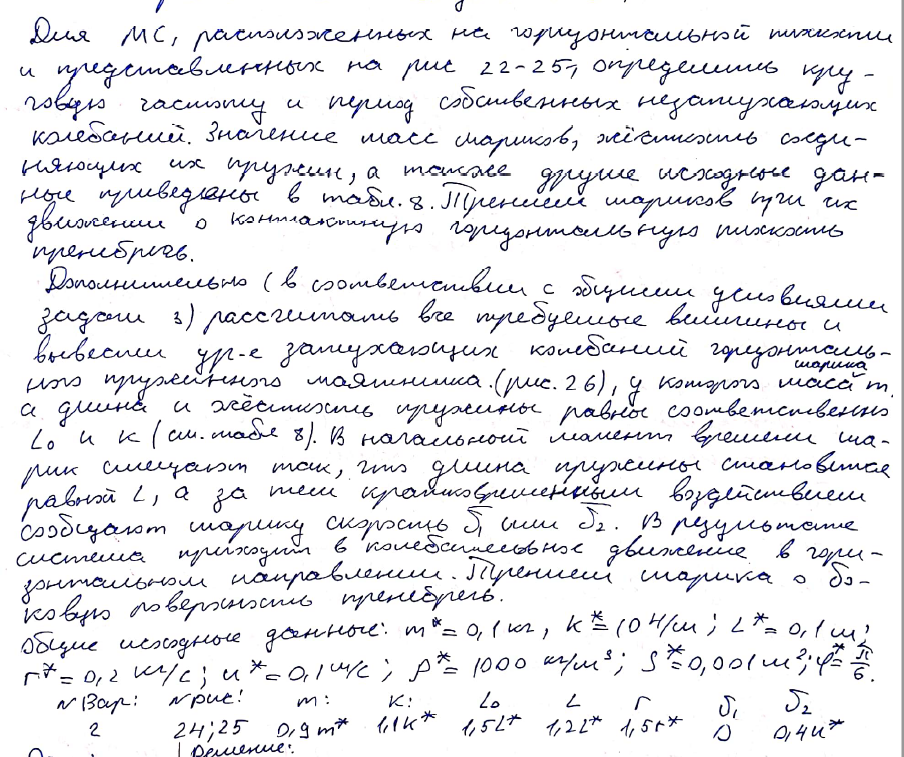 Для МС, расположенных на горизонтальной плоскости
и представленных на рис 22-25, определить кру-
говую частоту и период собственных незатухающих
колебаний. Значение масс шариков, жёсткость соеди-
няющих их пружин, а также другие исходные дан-
ные приведены в табл. 8. Трением шариков при их
движении о контактную горизонтальную плоскость
пренебречь.
Дополнительно (в соответствии с общими условиями
задачи 3) рассчитать все требуемые величины и
вывести ур-е затухающих колебаний горизонталь-
ного пружинного маятника (рис. 26), у которого масса шарика m,
а длина и жёсткость пружины равны соответственно
L₀ и K (см. табл 8). В начальный момент времени ша-
рик смещают так, что длина пружины становится
равной L, а за тем кратковременным воздействием
сообщают шарику скорость υ₁ или υ₂. В результате
система приходит в колебательное движение в гори-
зонтальном направлении. Трением шарика о бо-
ковую поверхность пренебречь.
Общие исходные данные: m* = 0,1 кг, K* = 10 Н/м; L* = 0,1 м;
r* = 0,2 кг/с; u* = 0,1 м/с; ρ* = 1000 кг/м³; S* = 0,001 м²; φ* = π/6.
№ Вар: № рис: m: K: L₀ L r υ₁ υ₂
2 24; 25 0,9m* 1,1K* 1,5L* 1,2L* 1,5r* 0 0,4u*
Решение: